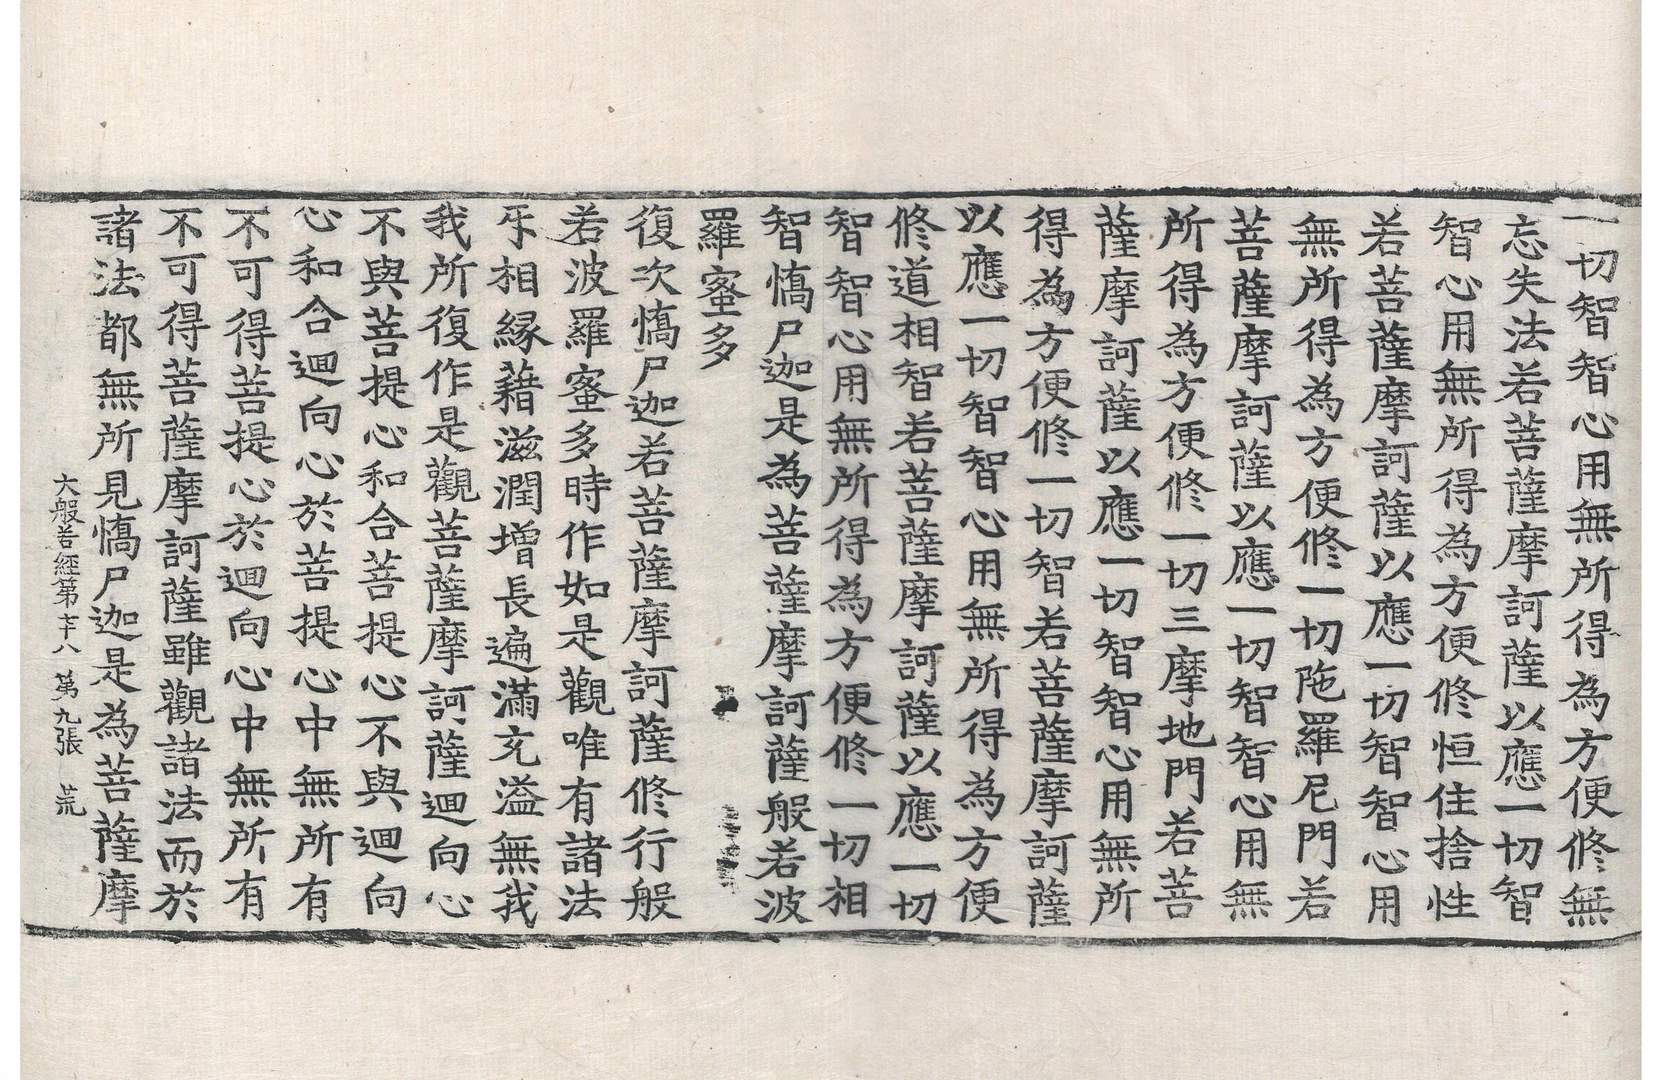 一切智智心用無所得為方便修無
忘失法若菩薩摩訶薩以應一切智
智心用無所得為方便修恒住捨性
若菩薩摩訶薩以應一切智智心用
無所得為方便修一切陁羅尼門若
菩薩摩訶薩以應一切智智心用無
所得為方便修一切三摩地門若菩
薩摩訶薩以應一切智智心用無所
得為方便修一切智若菩薩摩訶薩
以應一切智智心用無所得為方便
修道相智若菩薩摩訶薩以應一切
智智心用無所得為方便修一切相
智憍尸迦是為菩薩摩訶薩般若波
羅蜜多
復次憍尸迦若菩薩摩訶薩修行般
若波羅蜜多時作如是觀唯有諸法
牙相緣藉滋潤增長遍滿充溢無我
我所復作是觀菩薩摩訶薩迴向心
不與菩提心和合菩提心不與迴向
心和合迴向心於菩提心中無所有
不可得菩提心於迴向心中無所有
不可得菩薩摩訶薩雖觀諸法而於
諸法都無所見憍尸迦是為菩薩摩
大般若經第七十八 第九張 荒